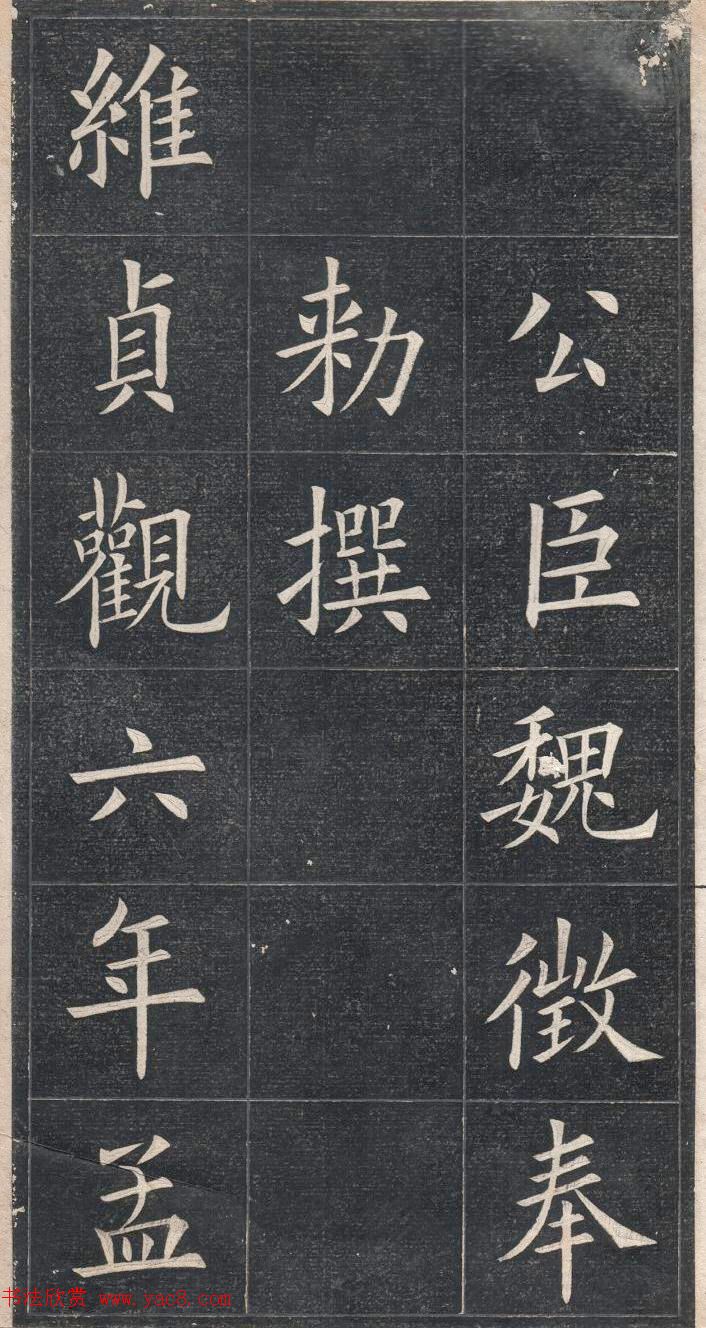 公臣魏徵奉
勑撰
維貞觀六年孟
书法欣赏 www.yac8.com